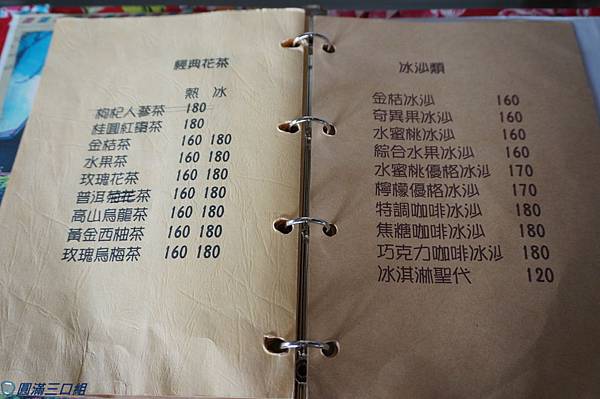 經典花茶
熱 冰
枸杞人蔘茶 180
桂圓紅棗茶 180
金桔茶 160 180
水果茶 160 180
玫瑰花茶 160 180
普洱菊花茶 160 180
高山烏龍茶 160 180
黃金西柚茶 160 180
玫瑰烏梅茶 160 180
冰沙類
金桔冰沙 160
奇異果冰沙 160
水蜜桃冰沙 160
綜合水果冰沙 160
水蜜桃優格冰沙 170
檸檬優格冰沙 170
特調咖啡冰沙 180
焦糖咖啡冰沙 180
巧克力咖啡冰沙 180
冰淇淋聖代 120
圓滿三口組